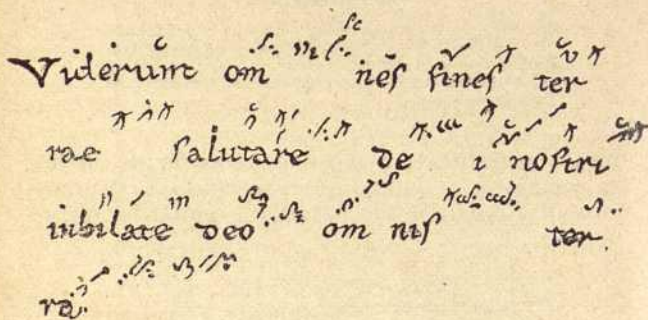 Viderunt om neſ fineſ ter
rae ſalutare De i noſtri
iubilate Deo om niſ ter
ra.